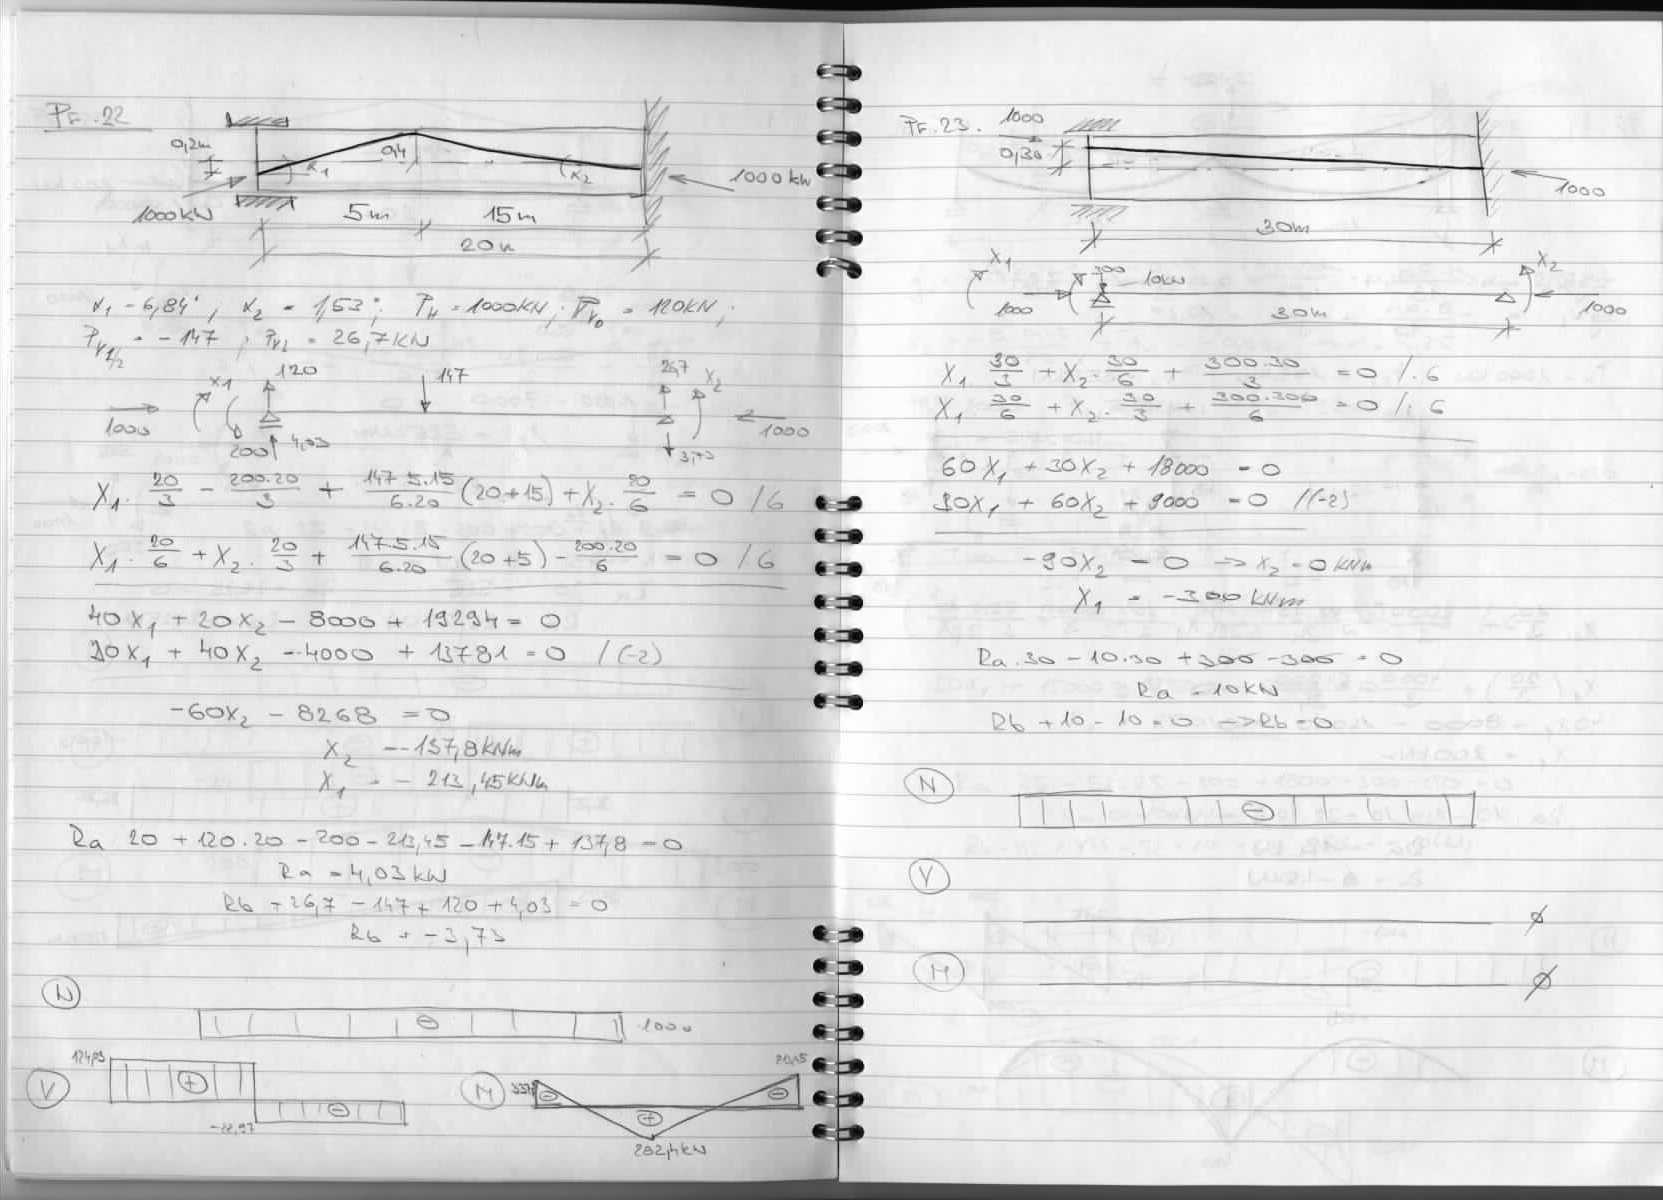 Př. 22
0,2m
0,4
α1
α2
1000kN
1000kN
5m
15m
20m
α1 = 6,84°, α2 = 1,53°; PH = 1000kN; PV0 = 120kN;
PV1/2 = -147; PV2 = 26,7kN
X1
120
147
26,7
X2
1000
200
4,03
3,73
1000
X1 · 20/3 - 200·20/3 + 147·5·15/6·20 (20+15) + X2 · 20/6 = 0 /6
X1 · 20/6 + X2 · 20/3 + 147·5·15/6·20 (20+5) - 200·20/6 = 0 /6
40X1 + 20X2 - 8000 + 19294 = 0
20X1 + 40X2 - 4000 + 13781 = 0 /(-2)
-60X2 - 8268 = 0
X2 = -137,8kNm
X1 = -213,45kNm
Ra 20 + 120·20 - 200 - 213,45 - 147·15 + 137,8 = 0
Ra = 4,03kN
Rb + 26,7 - 147 + 120 + 4,03 = 0
Rb = -3,73
N
⊖
1000
V
⊕
⊖
M
⊖
⊕
⊖
282,4kN
Př. 23.
1000
0,30
1000
30m
X1
300
10kN
X2
1000
1000
30m
X1 30/3 + X2 · 30/6 + 300·30/3 = 0 /·6
X1 · 30/6 + X2 · 30/3 + 300·300/6 = 0 /·6
60X1 + 30X2 + 18000 = 0
30X1 + 60X2 + 9000 = 0 /(-2)
-90X2 = 0 → X2 = 0kNm
X1 = -300kNm
Ra·30 - 10·30 + 300 - 300 = 0
Ra = 10kN
Rb + 10 - 10 = 0 → Rb = 0
N
⊖
V
Ø
M
Ø